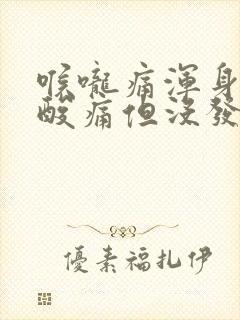 喉嚨痛渾身
酸痛但沒發
優素福扎伊